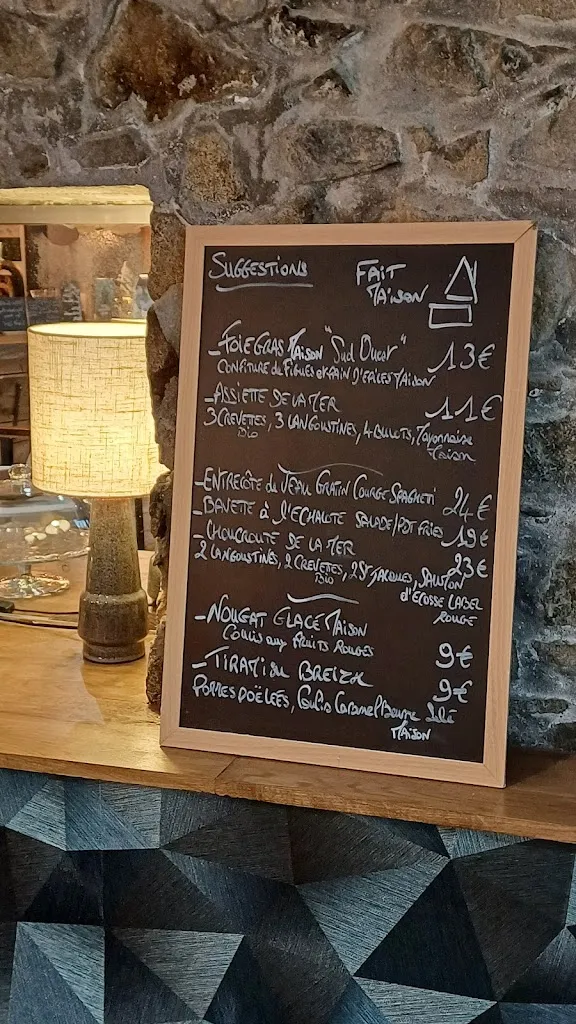 SUGGESTIONS
FAIT
MAISON
- FOIE GRAS MAISON "Sud Ouest" 13€
CONFITURE de FIGUES et PAIN D'EPICES MAISON
- ASSIETTE DE LA MER 11€
3 CREVETTES, 3 LANGOUSTINES, 4 BULOTS, Mayonnaise
Bio Maison
- ENTRECÔTE de VEAU GRATIN COURGE SPAGHETI 24€
- BAVETTE à L'ECHALOTE SALADE/POT FRIES 19€
- CHOUCROUTE DE LA MER 23€
2 LANGOUSTINES, 2 CREVETTES, 2 ST JACQUES, SAUMON
Bio d'ECOSSE LABEL
ROUGE
- NOUGAT GLACÉ MAISON 9€
COULIS aux FRUITS ROUGES
- TIRAMISU BREIZH 9€
POMMES POÊLÉES, Coulis Caramel Beurre Salé
MAISON